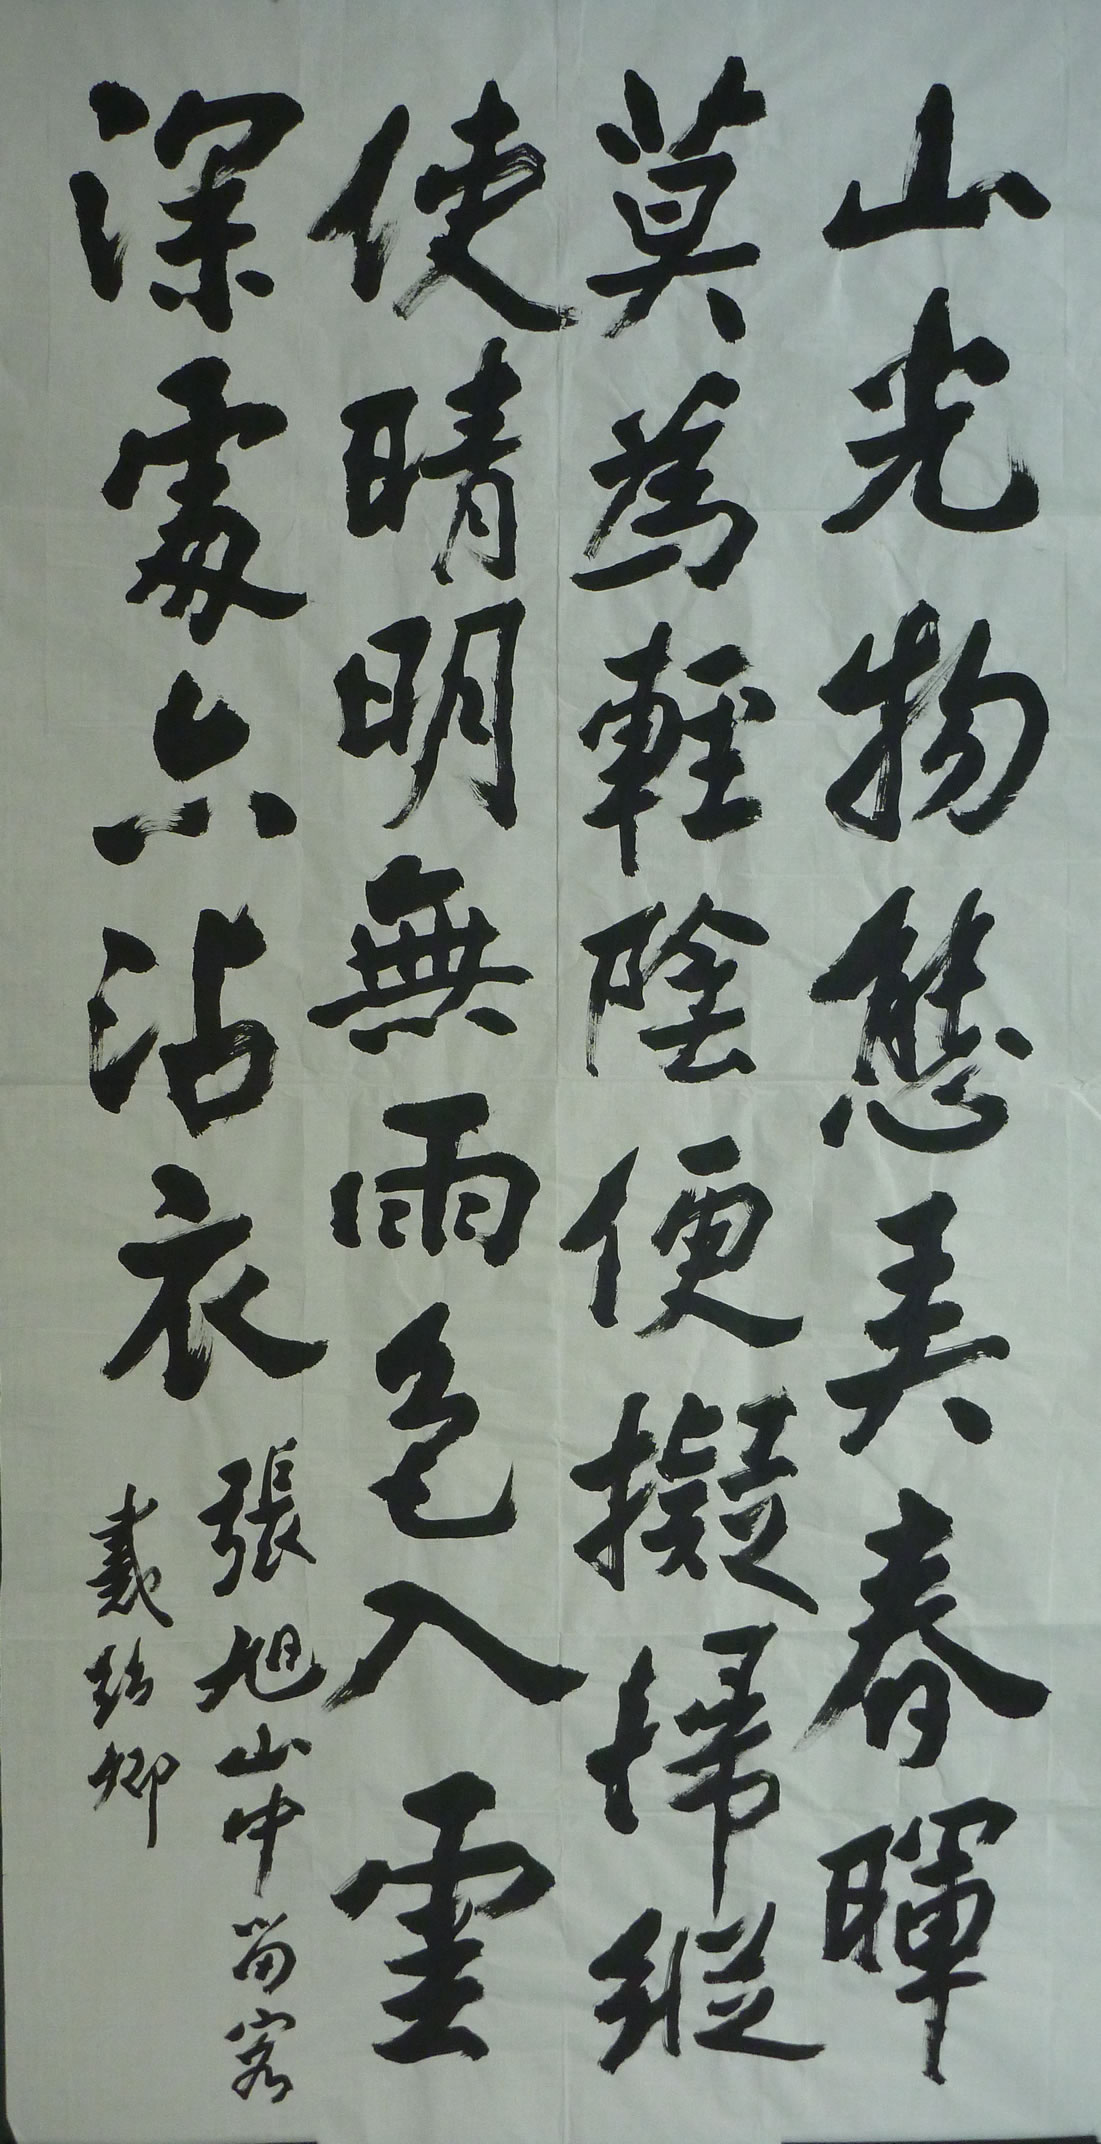 山光物態弄春暉
莫為輕陰便擬歸縱
使晴明無雨色入雲
深處亦沾衣
張旭山中留客
戴卿